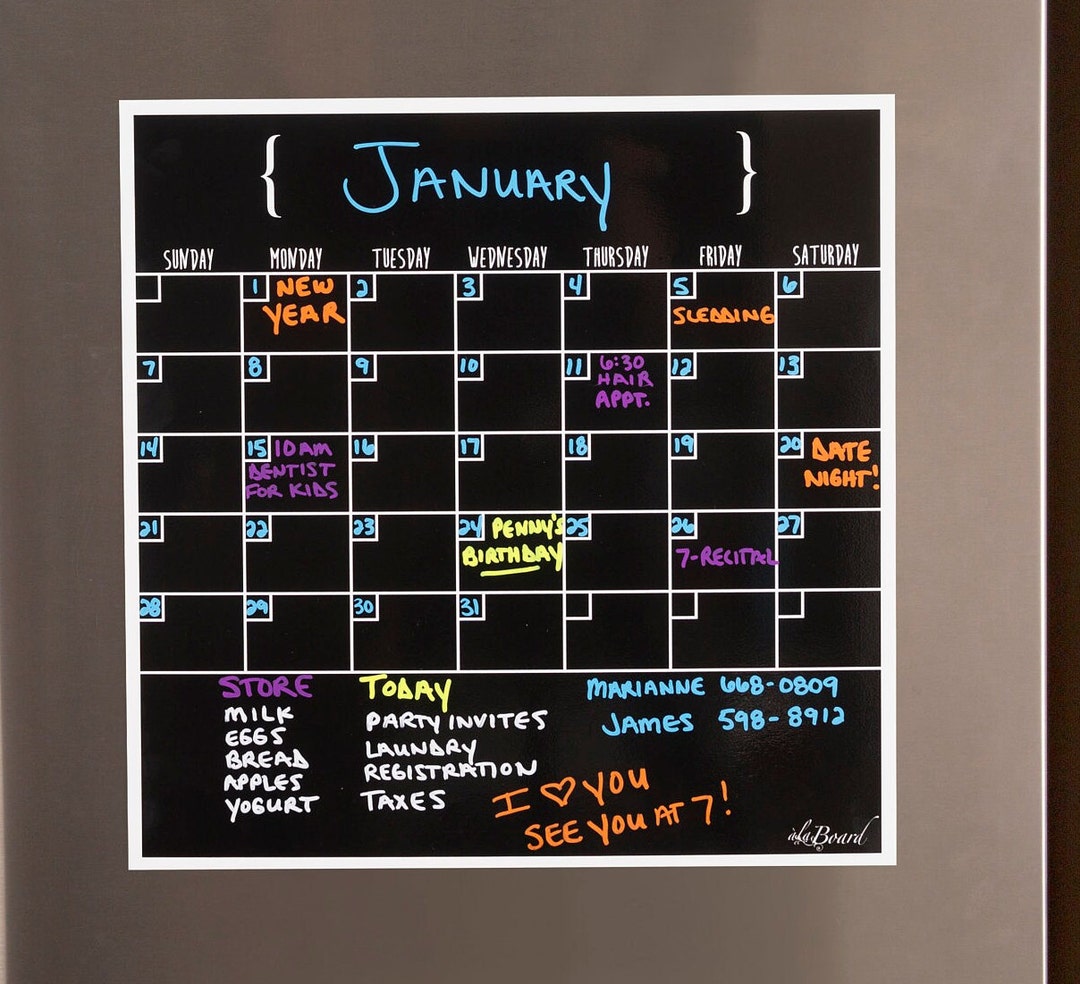 { JANUARY }
SUNDAY MONDAY TUESDAY WEDNESDAY THURSDAY FRIDAY SATURDAY
1 NEW 2 3 4 5 6
YEAR SLEDDING
7 8 9 10 11 6:30 12 13
HAIR
APPT.
14 15 10 AM 16 17 18 19 20 DATE
DENTIST NIGHT!
FOR KIDS
21 22 23 24 PENNY'S 25 26 27
BIRTHDAY 7-RECITAL
28 29 30 31
STORE
MILK
EGGS
BREAD
APPLES
YOGURT
TODAY
PARTY INVITES
LAUNDRY
REGISTRATION
TAXES
MARIANNE 668-0809
JAMES 598-8912
I ♡ YOU
SEE YOU AT 7!
àlaBoard